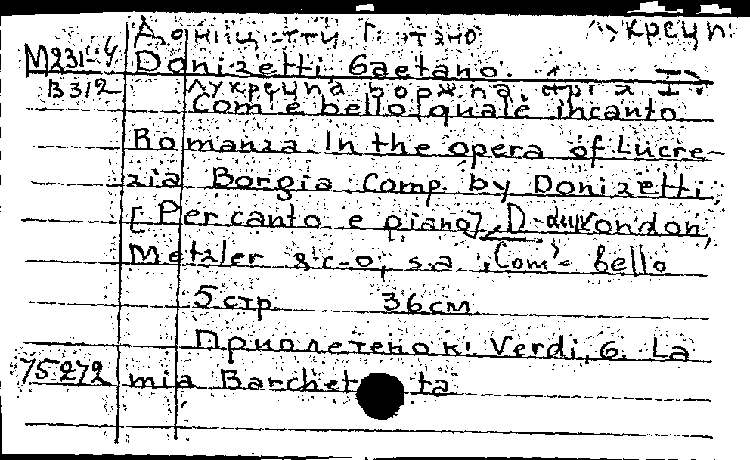 Доніцетти Г тано крецп
М231-4 Donizetti, Gaetano.
В312 Лукреціа Боржпа.
Com'è bello, quale incanto
Romanza In the opera of Lucre-
zia Borgia. Comp. by Donizetti,
[Per canto e piano], London,
Metzler & c-o, s.a. "Com'è bello
5 стр. 36 см.
Приплетено к: Verdi, G. La
75272 mia Barchet ta